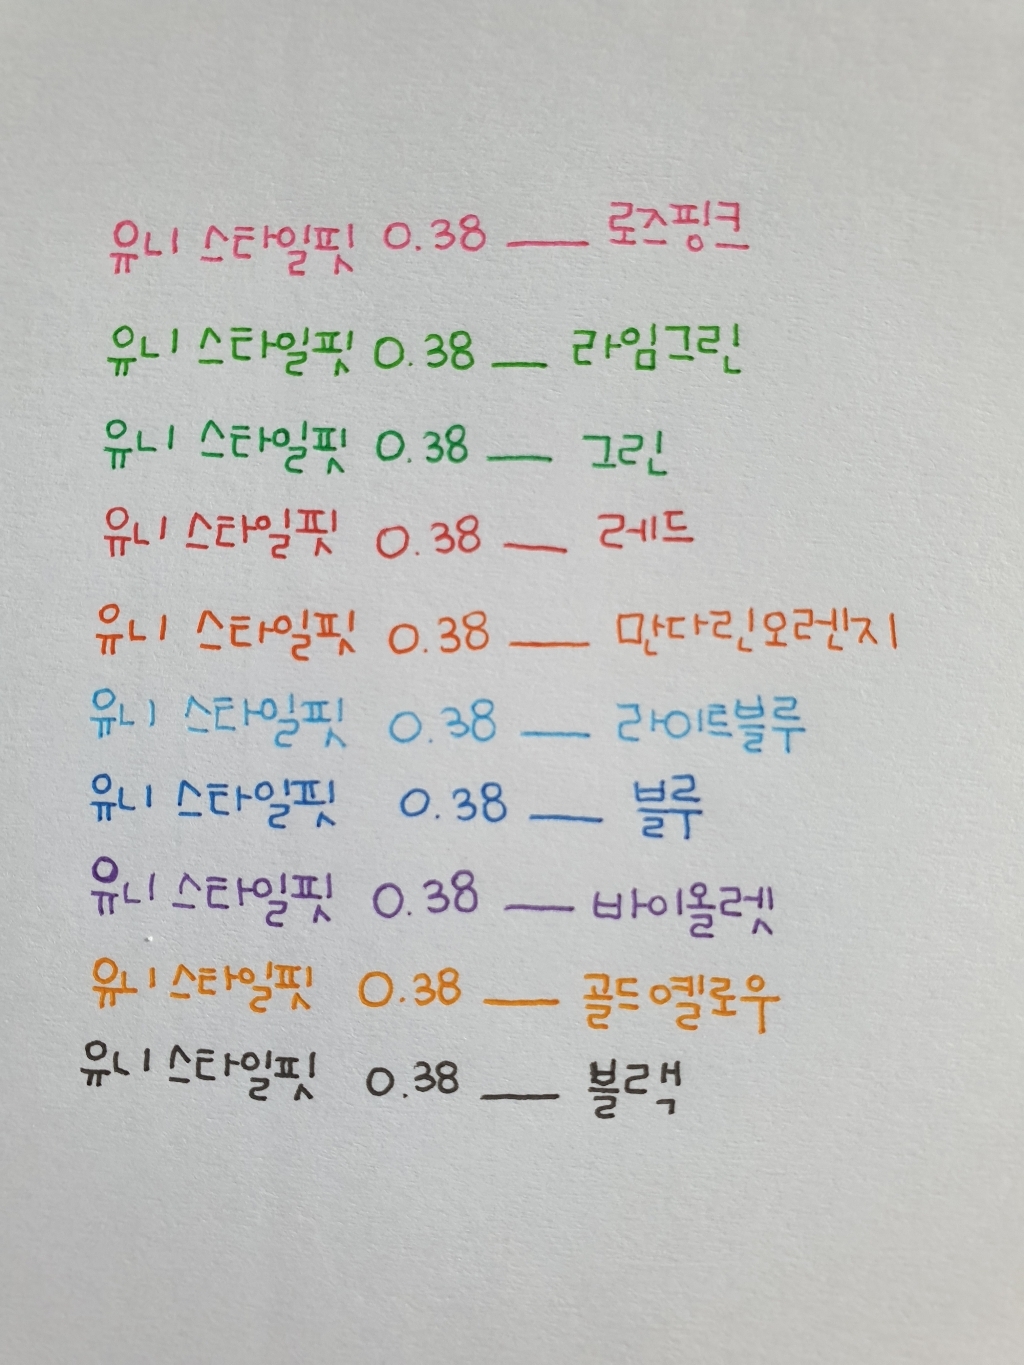 유니 스타일핏 0.38 — 로즈핑크
유니 스타일핏 0.38 — 라임그린
유니 스타일핏 0.38 — 그린
유니 스타일핏 0.38 — 레드
유니 스타일핏 0.38 — 만다린오렌지
유니 스타일핏 0.38 — 라이트블루
유니 스타일핏 0.38 — 블루
유니 스타일핏 0.38 — 바이올렛
유니 스타일핏 0.38 — 골드옐로우
유니 스타일핏 0.38 — 블랙